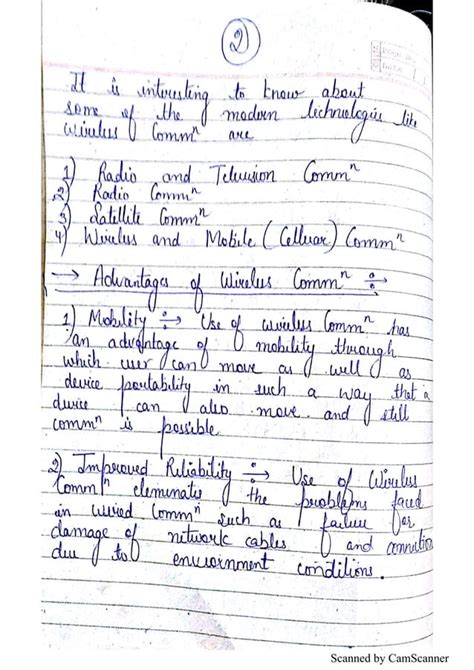 2
It is interesting to know about
some of the modern technologies like
wireless Commⁿ are
1) Radio and Television Commⁿ
2) Radio Commⁿ
3) Satellite Commⁿ
4) Wireless and Mobile (Celluar) Commⁿ
→ Advantages of Wireless Commⁿ ÷
1) Mobility ÷→ Use of wireless Commⁿ has
an advantage of mobility through
which user can move as well as
device portability in such a way that a
device can also move and still
commⁿ is possible
2) Improved Reliability ÷→ Use of Wireless
Commⁿ eleminates the problems faced
in wired Commⁿ such as failure or
damage of network cables and connection
due to enviornment conditions.
Scanned by CamScanner